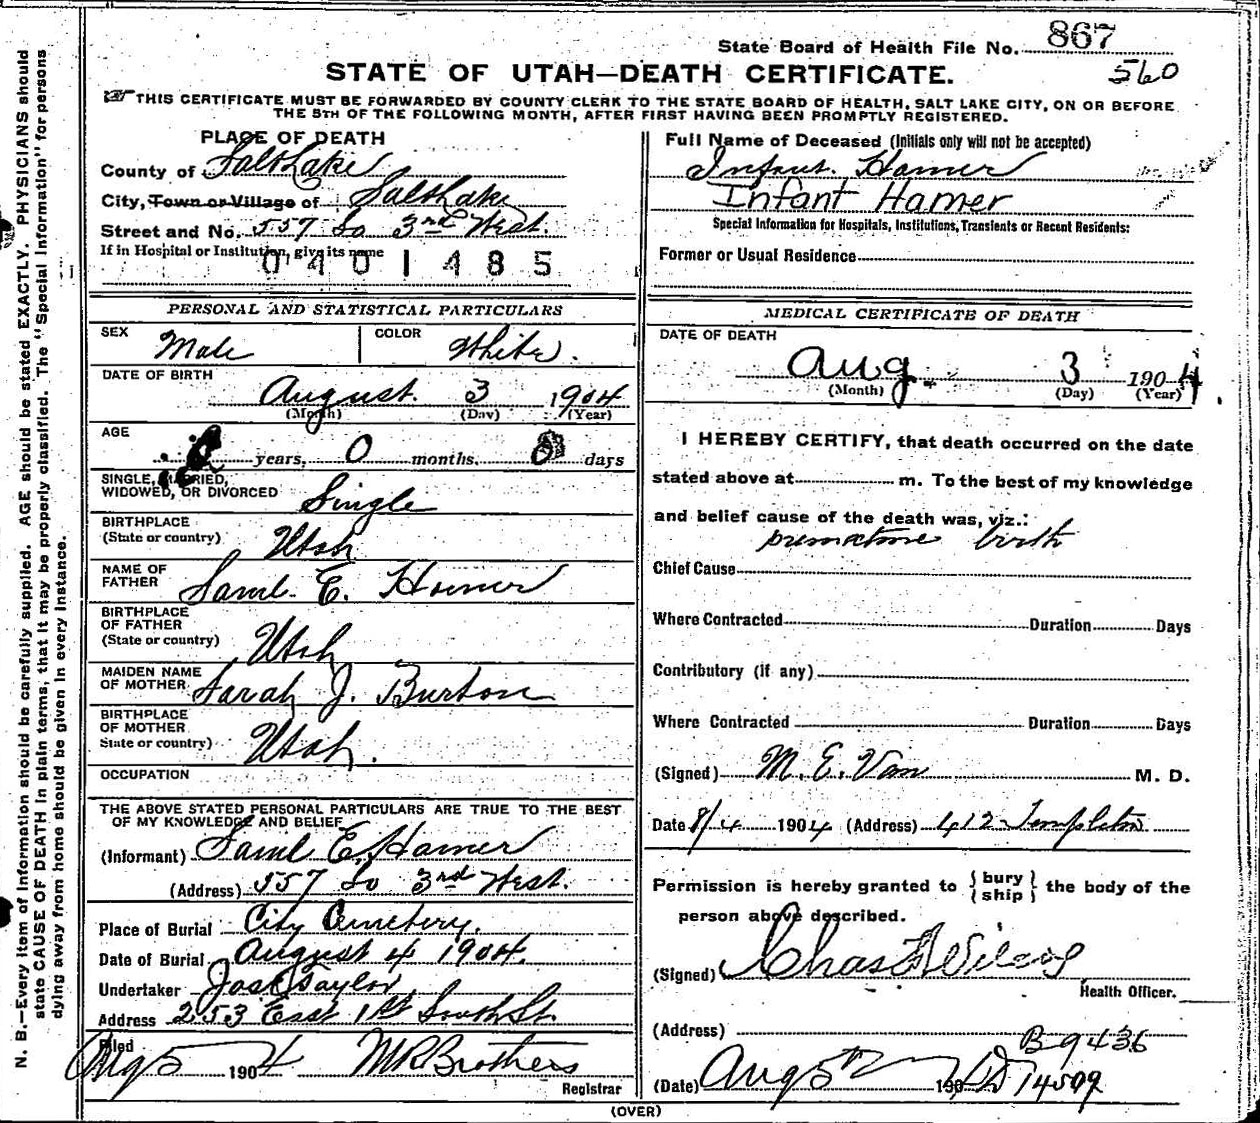 State Board of Health File No. 867
560
STATE OF UTAH—DEATH CERTIFICATE.
THIS CERTIFICATE MUST BE FORWARDED BY COUNTY CLERK TO THE STATE BOARD OF HEALTH, SALT LAKE CITY, ON OR BEFORE
THE 5TH OF THE FOLLOWING MONTH, AFTER FIRST HAVING BEEN PROMPTLY REGISTERED.
N. B.—Every item of Information should be carefully supplied. AGE should be stated EXACTLY. PHYSICIANS should
state CAUSE OF DEATH in plain terms, that it may be properly classified. The "Special Information" for persons
dying away from home should be given in every instance.
PLACE OF DEATH
County of Salt Lake
City, Town or Village of Salt Lake
Street and No. 557 So 3rd West.
If in Hospital or Institution, give its name
0401485
PERSONAL AND STATISTICAL PARTICULARS
SEX Male COLOR White.
DATE OF BIRTH
August 3 1904
(Month) (Day) (Year)
AGE
years, 0 months, days
SINGLE, MARRIED,
WIDOWED, OR DIVORCED Single
BIRTHPLACE
(State or country) Utah
NAME OF
FATHER Saml. E. Hamer
BIRTHPLACE
OF FATHER
(State or country) Utah
MAIDEN NAME
OF MOTHER Sarah J. Burton
BIRTHPLACE
OF MOTHER
State or country) Utah.
OCCUPATION
THE ABOVE STATED PERSONAL PARTICULARS ARE TRUE TO THE BEST
OF MY KNOWLEDGE AND BELIEF
(Informant) Saml E. Hamer
(Address) 557 So 3rd West.
Place of Burial City Cemetery.
Date of Burial August 4 1904.
Undertaker Jos E Taylor
Address 253 East 1st South St.
Filed Aug 5 1904 M R Brothers
Registrar
Full Name of Deceased (Initials only will not be accepted)
Infant. Hamer
Infant Hamer
Special Information for Hospitals, Institutions, Transients or Recent Residents:
Former or Usual Residence
MEDICAL CERTIFICATE OF DEATH
DATE OF DEATH
Aug. 3 1904
(Month) (Day) (Year)
I HEREBY CERTIFY, that death occurred on the date
stated above at m. To the best of my knowledge
and belief cause of the death was, viz.:
premature birth
Chief Cause
Where Contracted Duration Days
Contributory (if any)
Where Contracted Duration Days
(Signed) M. E. Van M. D.
Date 8/4 1904 (Address) 412 Templeton
Permission is hereby granted to { bury
ship } the body of the
person above described.
(Signed) Chas F Wilcox
Health Officer.
(Address)
B 9436
(Date) Aug 5 190 D 14509
(OVER)